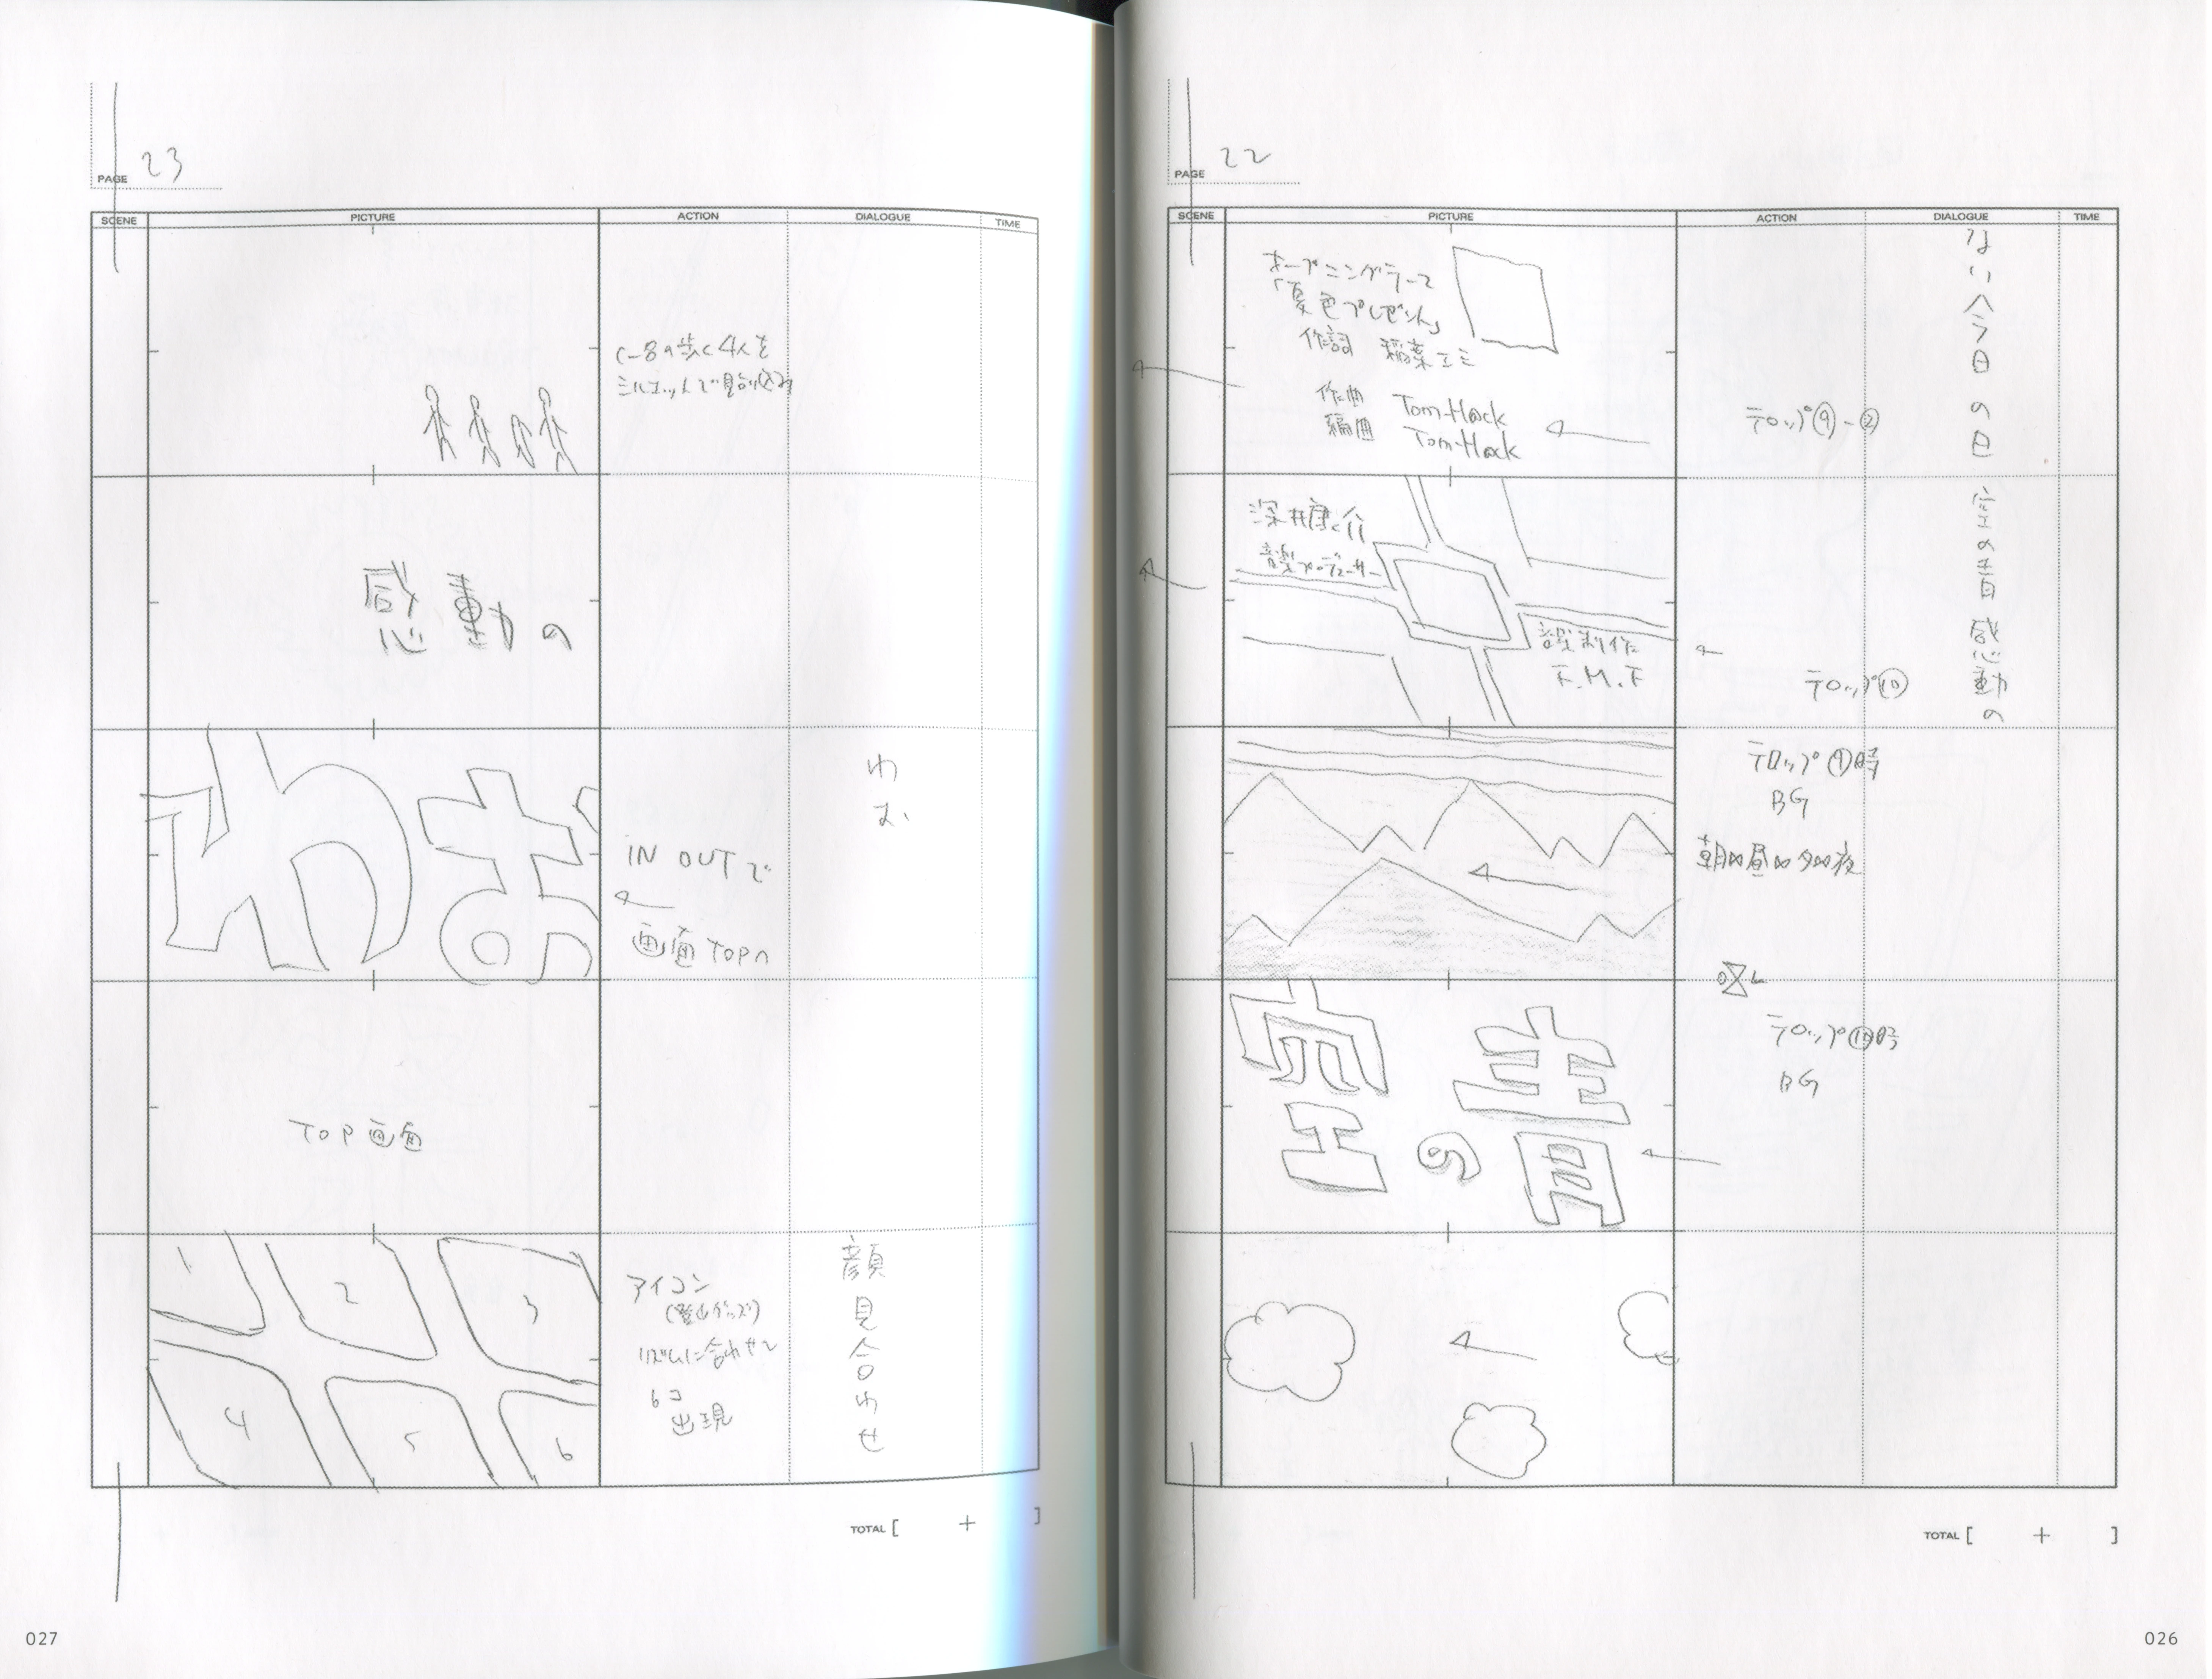 22
PAGE
SCENE
PICTURE
ACTION
DIALOGUE
TIME
オープニングテーマ
「夏色プレゼント」
作詞 稲葉エミ
作曲 Tom-H@ck
編曲 Tom-H@ck
テロップ⑨-②
ない今日の日
深井康介
音楽プロデューサー
音楽制作
F.M.F
テロップ⑩
空の青感動の
テロップ⑨時
BG
朝 昼 夕 夜
O.L
空の青
テロップ⑩時
BG
TOTAL [ + ]
026
23
PAGE
SCENE
PICTURE
ACTION
DIALOGUE
TIME
の歩く4人を
シルエットで
感動の
わお
IN OUTで
画面TOPへ
わお
TOP画面
1
2
3
4
5
6
アイコン
(登山グッズ)
リズムに合わせて
6コ
出現
顔見合わせ
TOTAL [ + ]
027